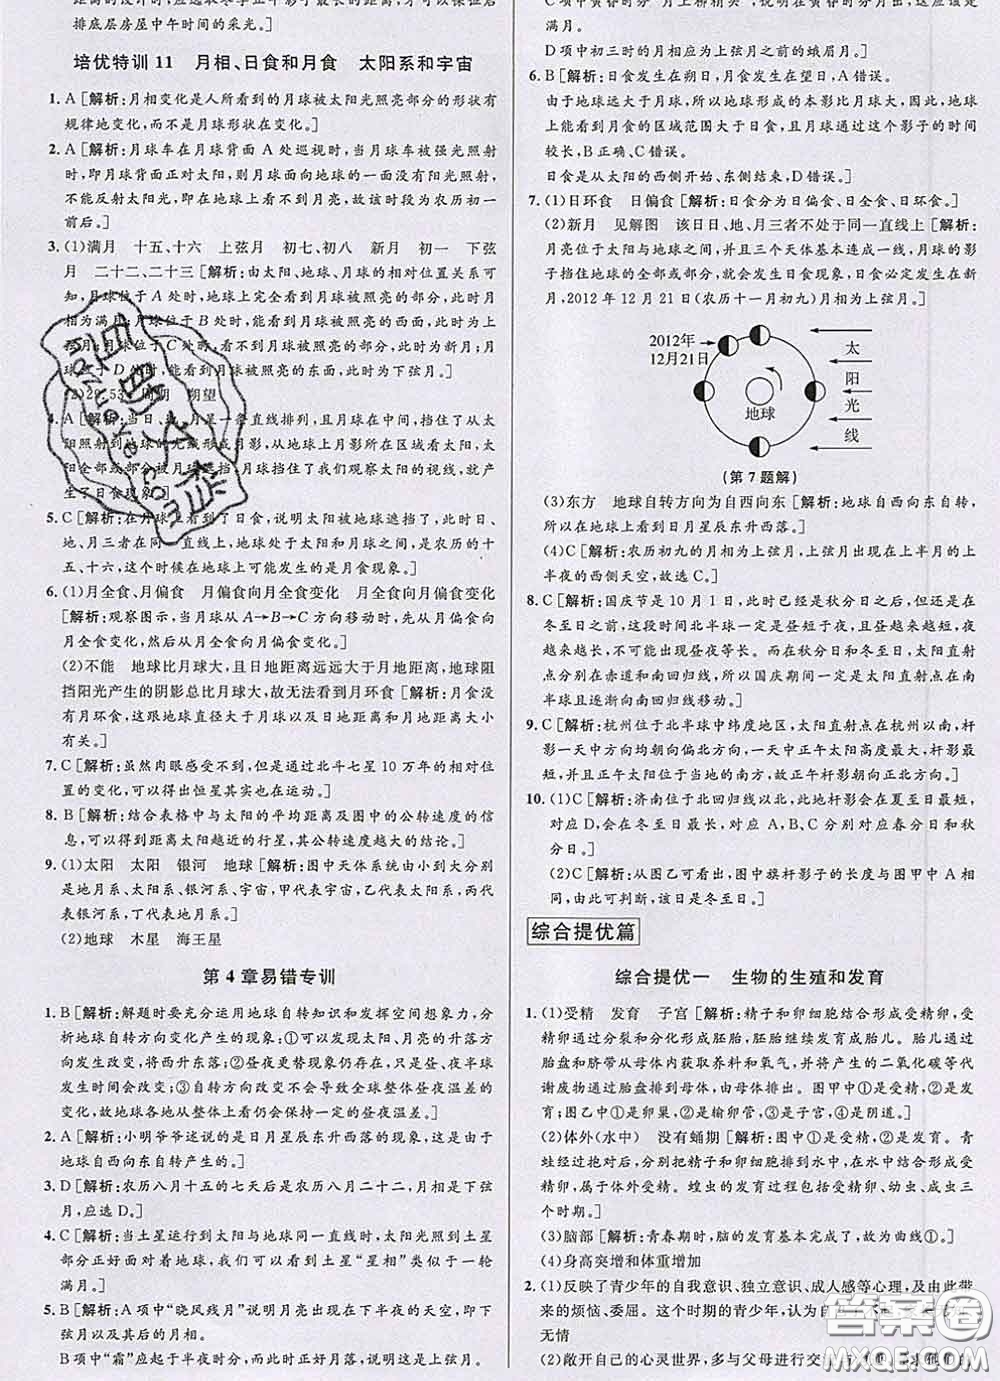 排底层房屋中午时间的采光。]
培优特训 11 月相、日食和月食 太阳系和宇宙
1. A [解析:月相变化是人所看到的月球被太阳光照亮部分的形状有
规律地变化,而不是月球形状在变化。]
2. A [解析:月球车在月球背面 A 处巡视时,当月球车被强光照射
时,即月球背面正对太阳,则月球面向地球的一面没有阳光照射,
不能反射太阳光,则在地球上看不到月球,故该时段为农历初一
前后。]
3. (1)满月 十五、十六 上弦月 初七、初八 新月 初一 下弦
月 二十二、二十三 [解析:由太阳、地球、月球的相对位置关系可
知,月球位于 A 处时,地球上完全看到月球被照亮的部分,此时月
相为满月;月球位于 B 处时,能看到月球被照亮的西面,此时为上
弦月;月球位于 C 处时,看不到月球被照亮的部分,此时为新月;月
球位于 D 处时,能看到月球被照亮的东面,此时为下弦月。]
(2)29.53 周期 朔望
4. A [解析:当日、地、月星一条直线排列,且月球在中间,挡住了从太
阳照射到地球的光线形成月影,从地球上月影所在区域看太阳,太
阳全部或部分被月球遮挡;月球挡住了我们观察太阳的视线,就产
生了日食现象。]
5. C [解析:在月球上看到了日食,说明太阳被地球遮挡了,此时日、
地、月三者在同一直线上,地球位于太阳和月球之间,是农历的十
五、十六,这个时候在地球上可能发生的是月食现象。]
6. (1)月全食、月偏食 月偏食向月全食变化 月全食向月偏食变化
[解析:观察图示,当月球从 A→B→C 方向移动时,先从月偏食向
月全食变化,然后从月全食向月偏食变化。]
(2)不能 地球比月球大,且日地距离远远大于月地距离,地球阻
挡阳光产生的阴影总比月球大,故无法看到月环食 [解析:月食没
有月环食,这跟地球直径大于月球以及日地距离和月地距离大小
有关。]
7. C [解析:虽然肉眼感受不到,但是通过北斗七星 10 万年的相对位
置的变化,可以得出恒星其实也在运动。]
8. B [解析:结合表格中与太阳的平均距离及图中的公转速度的信
息,可以得到距离太阳越近的行星,其公转速度越大的结论。]
9. (1)太阳 太阳 银河 地球 [解析:图中天体系统由小到大分别
是地月系、太阳系、银河系、宇宙,甲代表宇宙,乙代表太阳系,丙代
表银河系,丁代表地月系。]
(2)地球 木星 海王星
第 4 章易错专训
1. B [解析:解题时要充分运用地球自转知识和发挥空间想象力,分
析地球自转方向变化产生的现象:①可以发现太阳、月亮的升落方
向发生改变,将西升东落;②昼夜更替现象仍存在,只是昼、夜半球
发生时间会改变;③自转方向改变不会导致全球整体昼夜温差的
变化,故地球各地从整体上看仍会保持一定的昼夜温差。]
2. A [解析:小明爷爷述说的是日月星辰东升西落的现象,这是由于
地球自西向东自转产生的。]
3. D [解析:农历八月十五的七天后是农历八月二十二,月相是下弦
月,应选 D。]
4. C [解析:当土星运行到太阳与地球同一直线时,太阳光照亮的土星
部分正好面对着地球,我们看到土星“星相”类似于一轮
满月。]
5. B [解析:A 项中“晓风残月”说明月亮出现在下半夜的天空,即下
弦月以及其后的月相。
B 项中“霜”应起于半夜时分,三更半夜时分正好落下的是上弦月。
满月。
D 项中初三时的月相应为上弦月之前的月相。]
6. B [解析:日食发生在朔日,月食发生在望日,A 错误。
由于地球远大于月球,所以地球形成的本影比月球大,因此,地球
上能看到月食的区域范围大于日食,且月球通过这个影子的时间
较长,B 正确、C 错误。
日食是从太阳的西侧开始、东侧结束,D 错误。]
7. (1)日环食 日偏食 [解析:日食分为日偏食、日全食、日环食。]
(2)新月 见解图 该日日、地、月三者不处于同一直线上 [解析:
月亮位于太阳与地球之间,并且三个天体基本连成一线,月球的影
子挡住地球的全部或部分,就会发生日食现象,日食必定发生在新
月,2012 年 12 月 21 日(农历十一月初九)月相为上弦月。]
2012年
12月21日
地球
太
阳
光
线
(第 7 题解)
(3)东方 地球自转方向为自西向东 [解析:地球自西向东自转,
所以在地球上看到日月星辰东升西落。]
(4)C [解析:农历初九的月相为上弦月,上弦月出现在上半月的上
半夜的西侧天空,故选 C。]
8. C [解析:国庆节是 10 月 1 日,此时已经是秋分日之后,但是还在
冬至日之前,这段时间北半球一定是昼短于夜,且昼越来越短,夜
越来越长,不可能出现昼夜等长。而秋分日和冬至日,太阳直射
点分别在赤道和南回归线,所以国庆期间一定是太阳直射点在南
半球且逐渐向南回归线移动。]
9. C [解析:杭州位于北半球中纬度地区,太阳直射点在杭州以南,杆
影一天中方向均朝向偏北方向,一天中正午太阳高度最大,杆影最
短,正午太阳位于当地的南方,故正午杆影正好朝向正北方向。]
10. (1)C [解析:济南位于北回归线以北,此地杆影在夏至日最短,
对应 D,会在冬至日最长,对应 A,B、C 分别对应春分日和秋
分日。]
(2)C [解析:从图乙可看出,图中旗杆影子的长度与图甲中 A 相
同,因此可判断,该日是冬至日。]
综合提优篇
综合提优一 生物的生殖和发育
1. (1)受精 发育 子宫 [解析:精子和卵细胞结合形成受精卵,受精
卵通过分裂和分化形成胚胎,胚胎继续发育成胎儿。胎儿通过
胎盘和脐带从母体内获取养料和氧气,并将产生的二氧化碳等代
谢废物通过胎盘排到母体,由母体排出。图甲中①是受精,②是发
育;图乙中①是卵巢,②是输卵管,③是子宫,④是阴道。]
(2)体外(水中) 没有蛹期 [解析:图中①是受精,②是发育。青
蛙经过抱对后,把精子和卵细胞排到水中,在水中结合形成受精
卵,属于体外受精。蝗虫的发育过程经过受精卵、幼虫、成虫三
个时期。]
(3)脑部 [解析:青春期时,脑的发育基本完成,故为曲线①。]
(4)身高突增和体重增加
2. (1)反映了青少年的自我意识、独立意识、成人感等心理,及由此带
来的烦恼、委屈。这个时期的青少年,认为自
无情
(2)敞开自己的心灵世界,多与父母进行交
答案圈
MXQE.COM